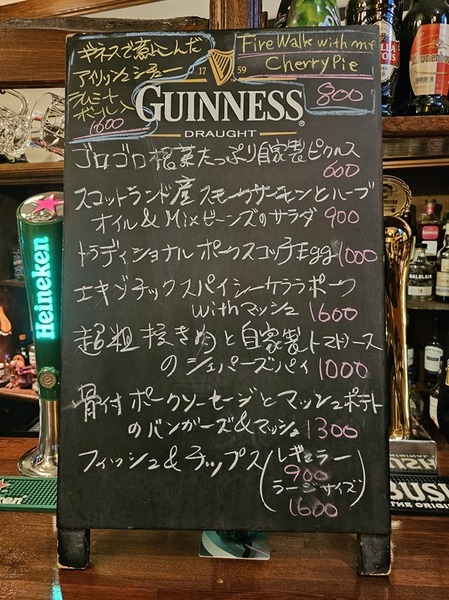 ギネスで煮こんだ
アイリッシュシチュー
ラムミート
ボール入り
1600
Fire Walk with me
Cherry Pie
800
17 59
GUINNESS
DRAUGHT
ゴロゴロ根菜たっぷり自家製ピクルス
600
スコットランド産スモークサーモンとハーブ
オイル&Mixビーンズのサラダ 900
トラディショナル ポークスコッチEgg 1000
エキゾチックスパイシーケララポーク
withマッシュ 1600
超粗挽き肉と自家製トマトソース
のシェパーズパイ 1000
骨付ポークソーセージとマッシュポテト
のバンガーズ&マッシュ 1300
フィッシュ&チップス(レギュラー
900
ラージサイズ)
1600
Heineken